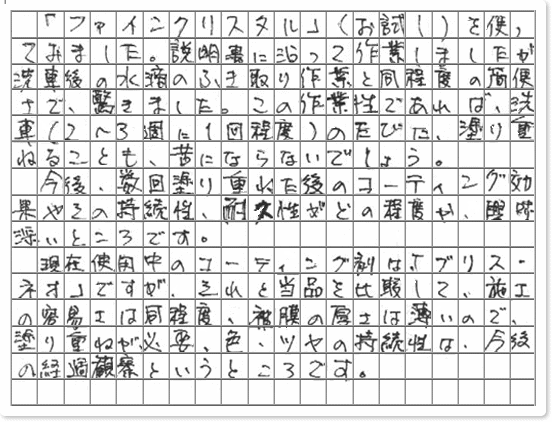 「ファインクリスタル」(お試し)を使っ
てみました。説明書に沿って作業しましたが
洗車後の水滴のふき取り作業と同程度の簡便
さで、驚きました。この作業性であれば、洗
車(2〜3週に1回程度)のたびに、塗り重
ねることも、苦にならないでしょう。
今後、数回塗り重ねた後のコーティング効
果やその持続性、耐久性がどの程度か、興味
深いところです。
現在使用中のコーティング剤は「ブリス・
ネオ」ですが、それと当品を比較して、施工
の容易さは同程度、被膜の厚さは薄いので、
塗り重ねが必要、色・ツヤの持続性は、今後
の経過観察というところです。